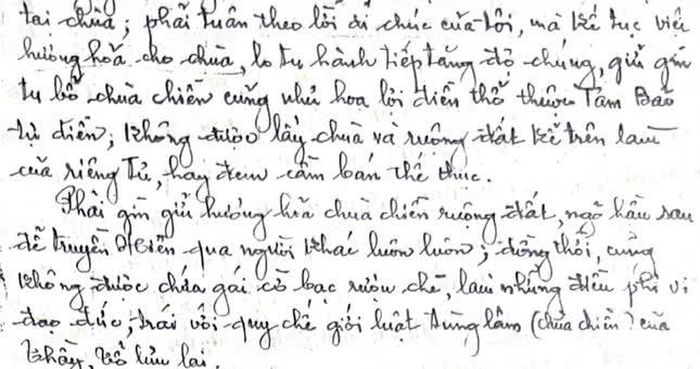 tại chùa; phải tuân theo lời di chúc của tôi, mà kế tục việc
hương hoả cho chùa, lo tu hành tiếp tăng độ chúng, giữ gìn
tu bổ chùa chiền cũng như hoa lợi điền thổ thuộc Tam Bảo
tự điền; không được lấy chùa và ruộng đất kể trên làm
của riêng tư, hay đem cầm bán thế thục.
Phải gìn giữ hương hỏa chùa chiền ruộng đất, ngỏ hầu sau
để truyền hiền qua người khác luôn luôn; đồng thời, cũng
không được chứa gái cờ bạc rượu chè, làm những điều phi vi
đạo đức, trái với quy chế giới luật tùng lâm (chùa chiền) của
thầy, tổ lưu lại.